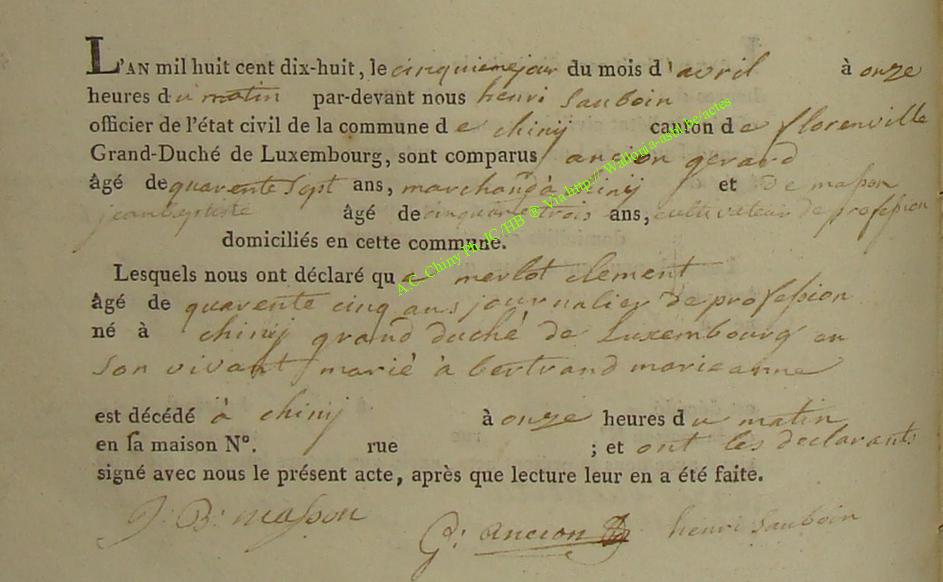 L'AN mil huit cent dix-huit, le cinquieme jour du mois d'avril à onze
heures du matin par-devant nous henri sauboin
officier de l'état civil de la commune de chinij canton de florenville
Grand-Duché de Luxembourg, sont comparus ancion gerard
âgé de quarente sept ans, marchand à chinij et de masson
jeanbaptiste âgé de cinquante trois ans, cultivateur de profession
domiciliés en cette commune.
Lesquels nous ont déclaré que merlot clement
âgé de quarente cinq ans journalier de profession
né à chinij grand duché de Luxembourg en
son vivant marié à bertrand marieanne
est décédé à chinij à onze heures du matin
en sa maison N°. rue ; et ont les declarants
signé avec nous le présent acte, après que lecture leur en a été faite.
J: B: masson G: ancion henri sauboin
A.C. Chiny Ph.JC/HB ® Via http:// Wallonia-asbl.be/actes